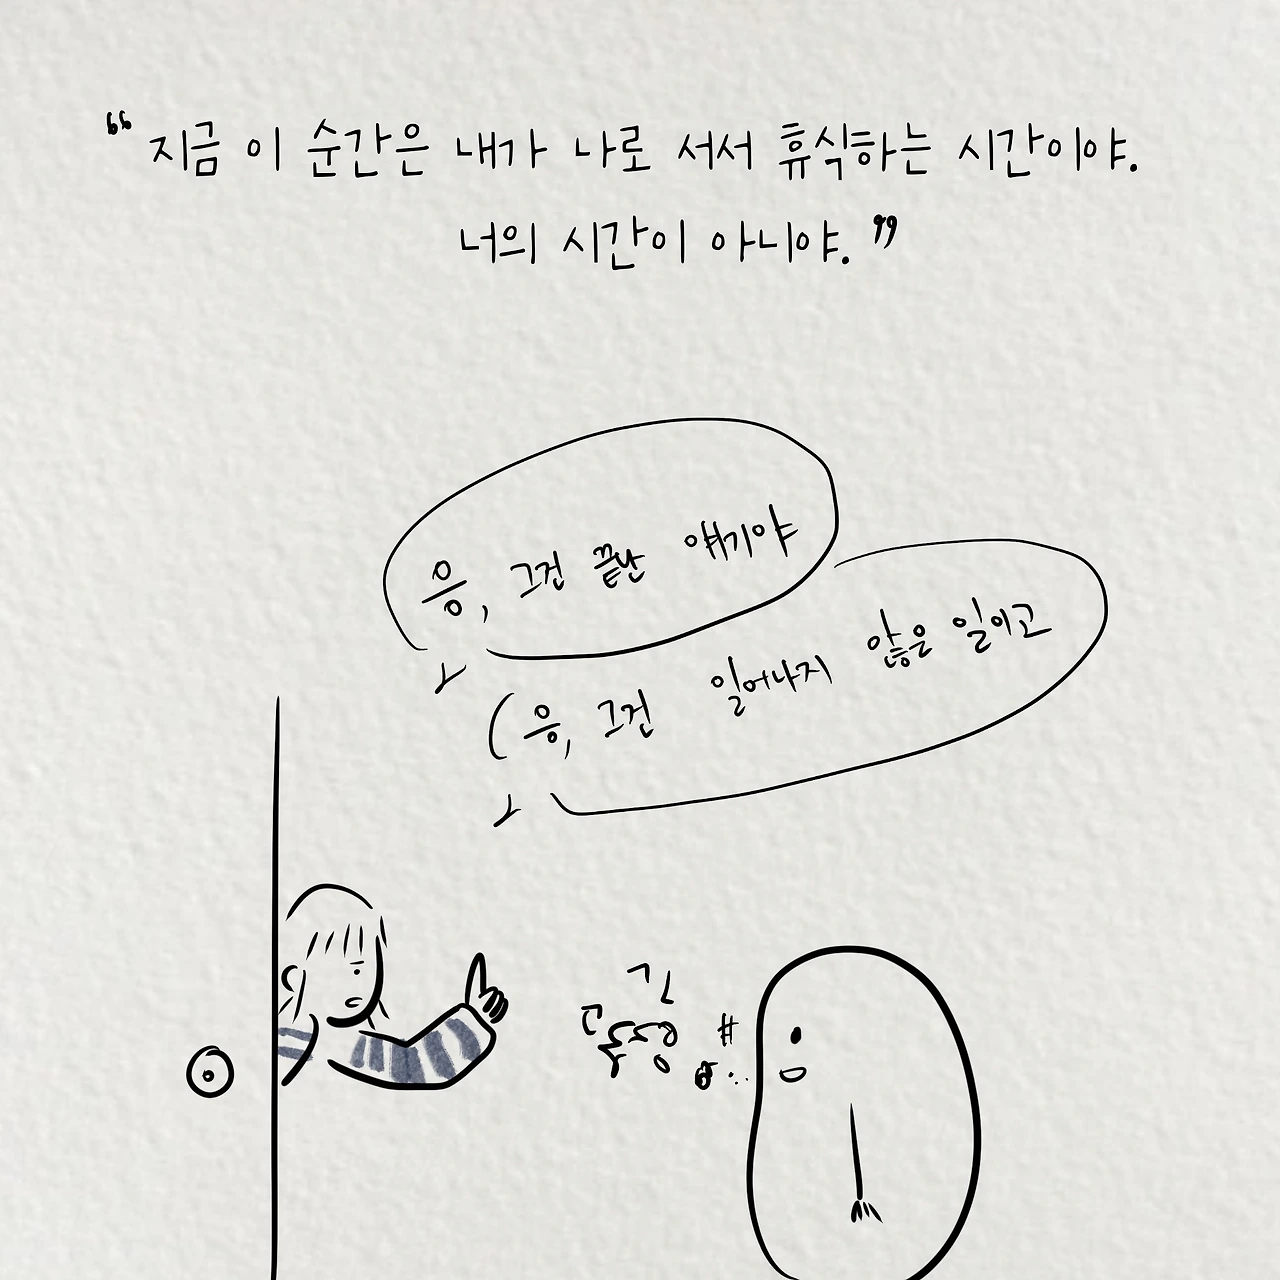 “지금 이 순간은 내가 나로 서서 휴식하는 시간이야.
너의 시간이 아니야.”
응, 그건 끝난 얘기야
(응, 그건 일어나지 않은 일이고